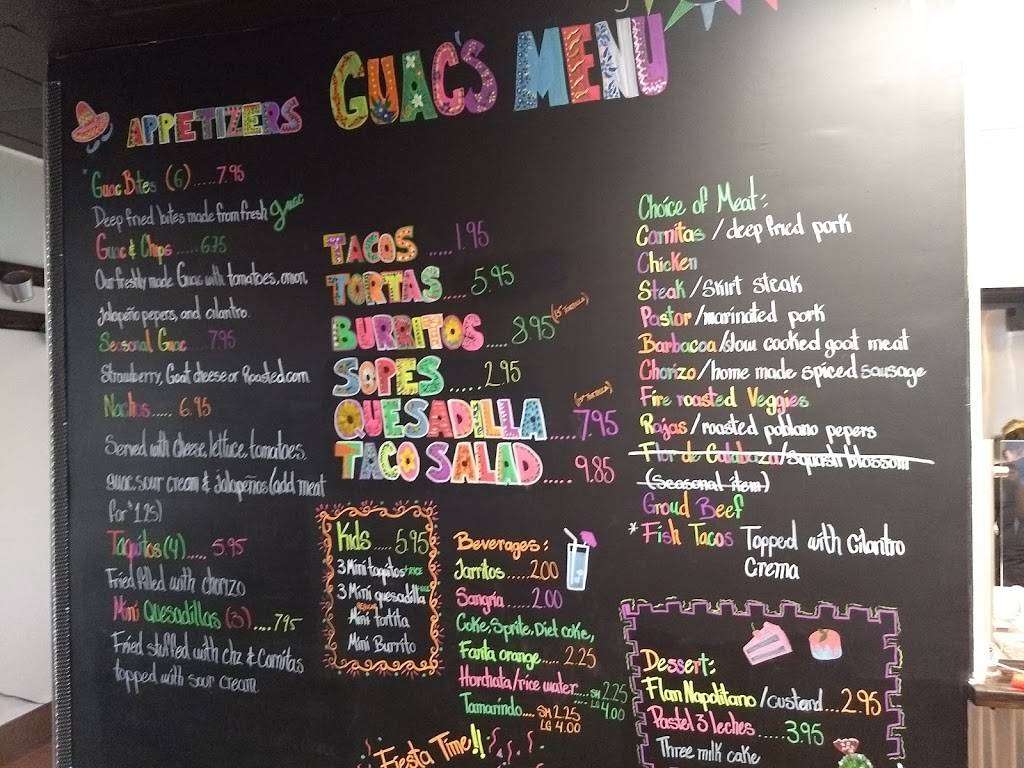 GUAC'S MENU
APPETIZERS
* Guac Bites (6).....7.95
Deep fried bites made from fresh guac
Guac & Chips......6.75
Our freshly made Guac with tomatoes, onion,
jalapeño pepers, and cilantro.
Seasonal Guac....7.95
Strawberry, Goat cheese or Roasted corn
Nachos..... 6.95
Served with cheese, lettuce, tomatoes,
guac, sour cream & jalapeños (add meat
for $1.25)
Taquitos (4)..... 5.95
Fried filled with chorizo
Mini Quesadillas (3)....7.95
Fried stuffed with Chz & Carnitas
topped with sour cream
TACOS ....1.95
TORTAS..... 5.95
BURRITOS.... 8.95
SOPES......2.95
QUESADILLA.....7.95
TACO SALAD..... 9.85
Kids.....5.95
3 Mini taquitos + RICE
3 Mini quesadilla
Mini tortita
Mini Burrito
Beverages:
Jarritos......2.00
Sangria......2.00
Coke, Sprite, Diet coke,
Fanta orange..... 2.25
Horchata/rice water.... SM 2.25
LG 4.00
Tamarindo.... SM 2.25
LG 4.00
Fiesta Time!!
Choice of Meat:
Carnitas / deep fried pork
Chicken
Steak / Skirt steak
Pastor / marinated pork
Barbacoa / slow cooked goat meat
Chorizo / home made spiced sausage
Fire roasted Veggies
Rajas / roasted poblano pepers
Flor de Calabaza / squash blossom
(Seasonal item)
Groud Beef
* Fish Tacos Topped with Cilantro
Crema
Dessert:
Flan Napolitano / custard...2.95
Pastel 3 leches......3.95
Three milk cake